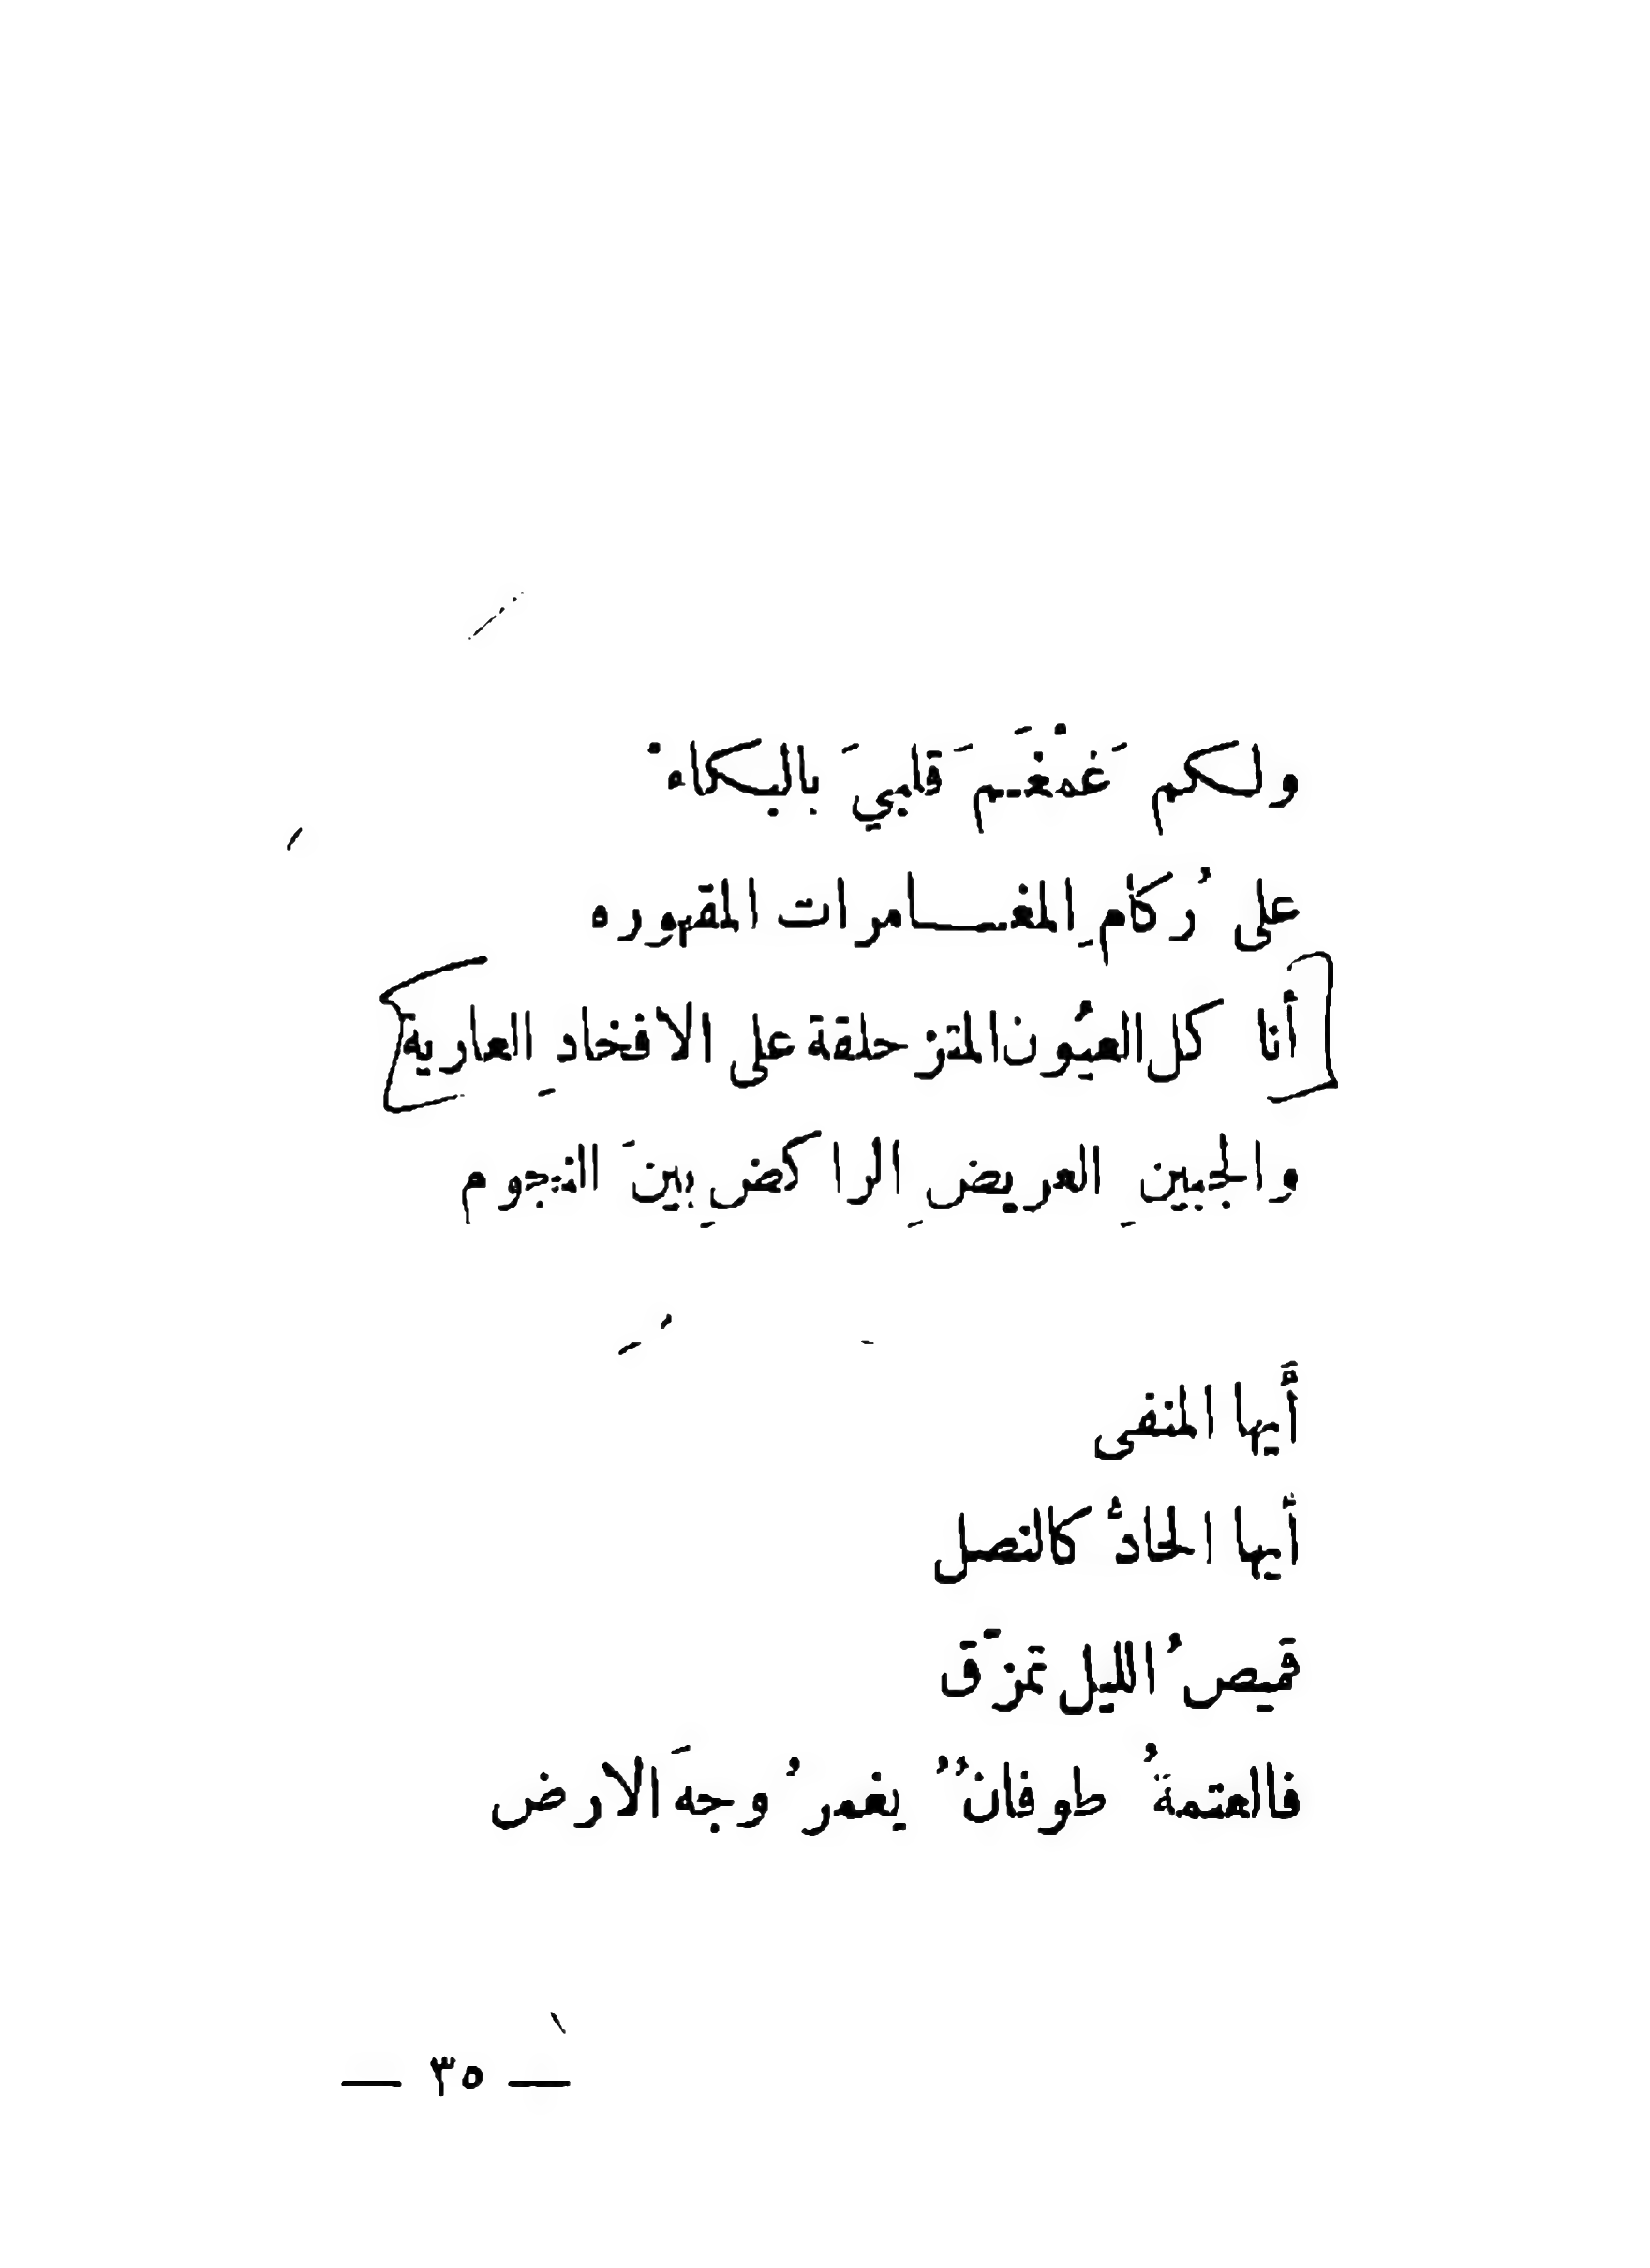 ولكم غَمْغَمَ قلبيَ بالبكاءْ
على رُكامِ المغـــامرات المقهوره
أنا كل العيُون المتزحلقة على الافخادِ العارية
والجبينِ العريضِ الراكضِ بينَ النجوم
أَيها المنفى
أيها الحادُّ كالنصل
قميصُ الليل تمزّق
فالعتمةُ طوفانٌ يغمرُ وجهَ الارض
— ٣٥ —